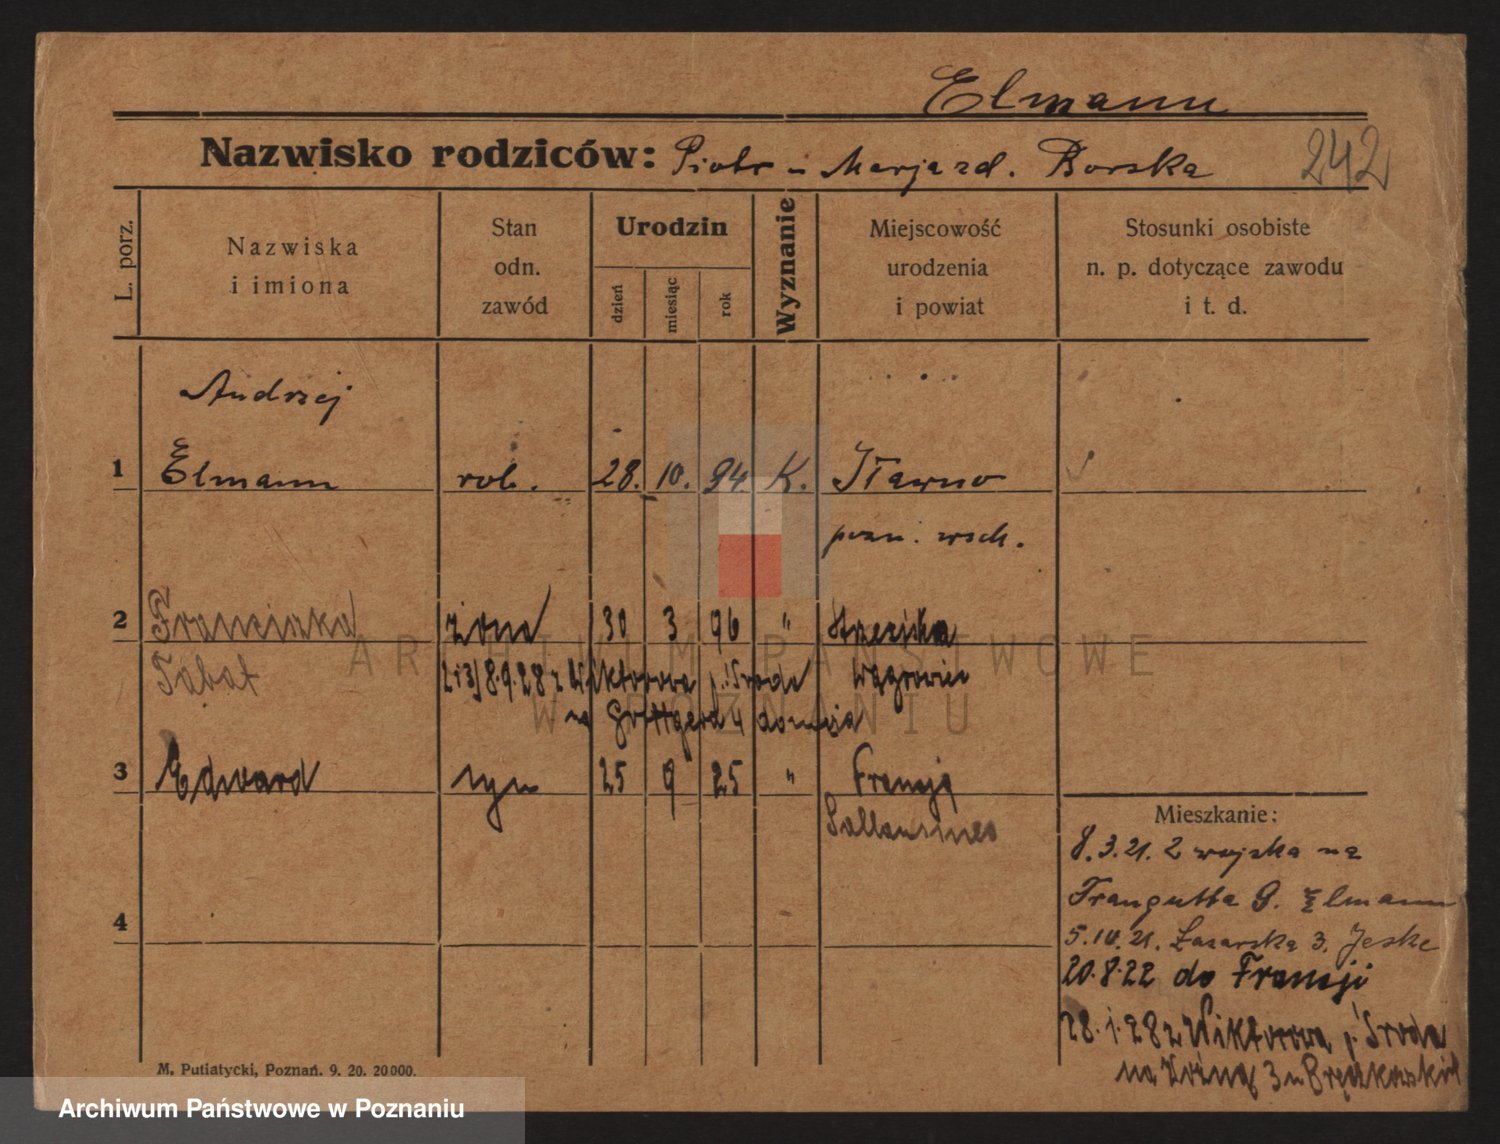 Elmann
Nazwisko rodziców: Piotr i Marja zd. Borska
242
L. porz.
Nazwiska
i imiona
Stan
odn.
zawód
Urodzin
dzień
miesiąc
rok
Wyznanie
Miejscowość
urodzenia
i powiat
Stosunki osobiste
n. p. dotyczące zawodu
i t. d.
Andrzej
1 Elmann rob. 28. 10. 94. K. Iławno
pozn. wsch.
2 Franciszka żona 30 3 96 "
Tabat 2 i 3) 8.9.28 z Wiktorowa p. Środa Wągrowiec
na Grottgera 4 domeja
3 Edward syn 25 9 25 " Francja
Sallaumines
4
Mieszkanie:
8.3.21. z wojska na
Traugutta 9. Elmann
5.10.21. Łazarska 3. Jeske
20.8.22 do Francji
28.1.28 z Wiktorowa p. Środa
na 3 u
M. Putiatycki, Poznań. 9. 20. 20000.
ARCHIWUM PAŃSTWOWE
W POZNANIU
Archiwum Państwowe w Poznaniu